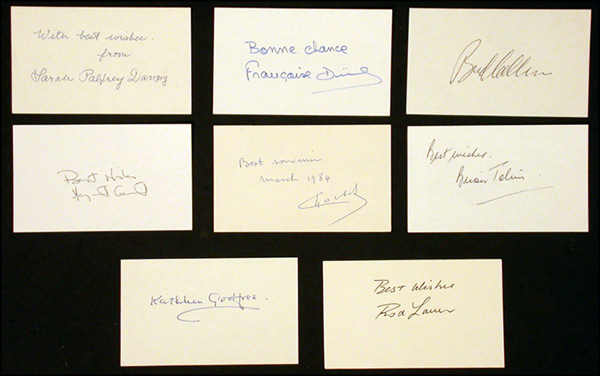 With best wishes.
from
Sarah Palfrey Danzig
Bonne chance
Françoise Dürr
Bud Collins
Best Wishes
Best souvenir
march 1984
Best wishes.
Brian Tobin
Kathleen Godfree.
Best Wishes
Rod Laver